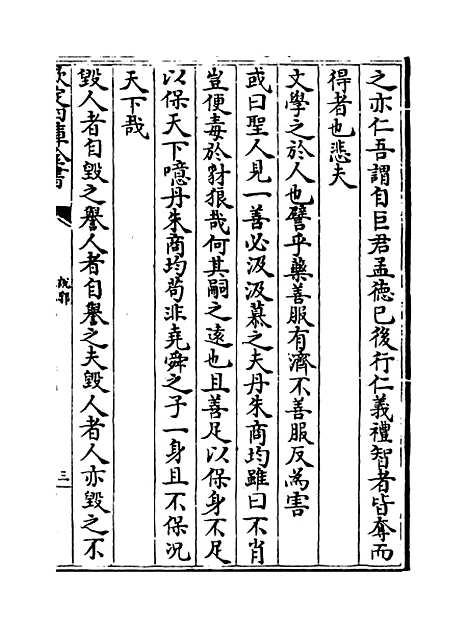 之亦仁吾謂自巨君孟德已後行仁義禮智者皆奪而
得者也悲夫
文學之於人也譬乎藥善服有濟不善服反為害
或曰聖人見一善必汲汲慕之夫丹朱商均雖曰不肖
豈便毒於豺狼哉何其嗣之遠也且善足以保身不足
以保天下噫丹朱商均苟非堯舜之子一身且不保况
天下哉
毀人者自毀之譽人者自譽之夫毀人者人亦毀之不
欽定四庫全書
說郛
三